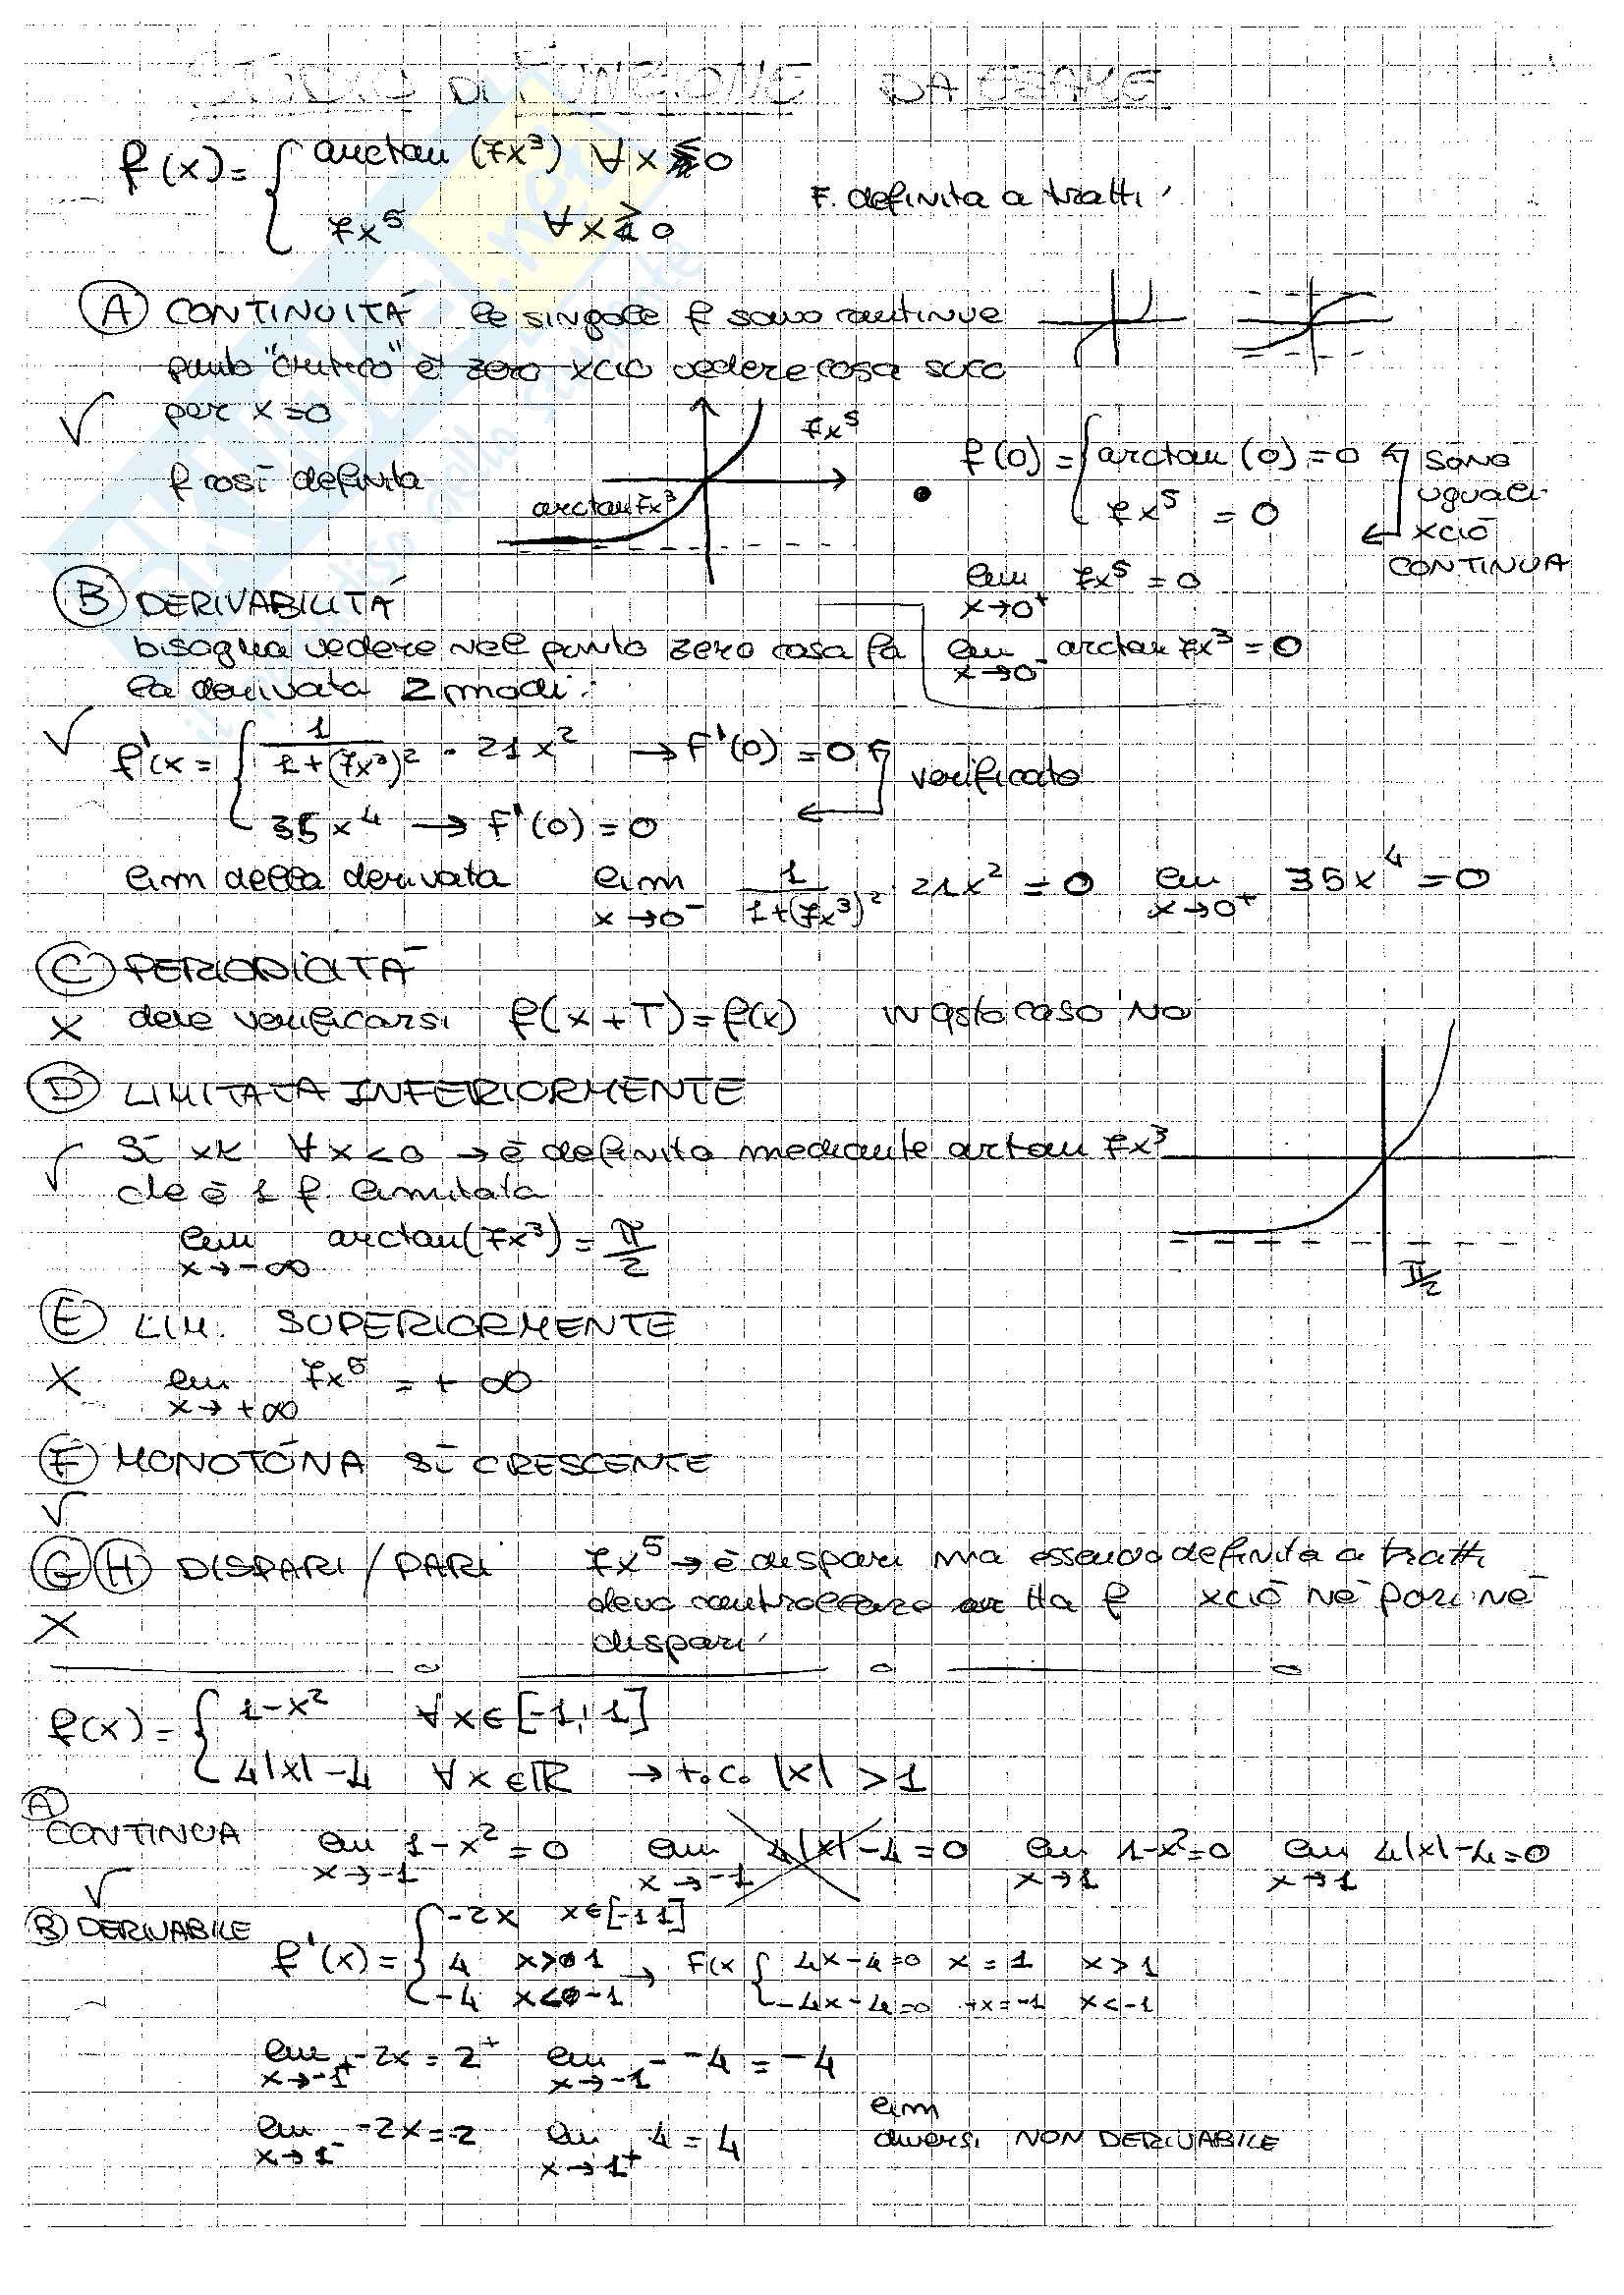 STUDIO DI FUNZIONE DA ESAME
f(x) = { arctan (7x³) ∀x ≤ 0
7x⁵ ∀x ≥ 0
F. definita a tratti
(A) CONTINUITÀ le singole f sono continue
punto "critico" è zero xciò vedere cosa succ
per x=0
f così definita
7x⁵
arctan 7x³
f(0) = { arctan (0) = 0
7x⁵ = 0
sono
uguali
xciò
CONTINUA
lim x→0⁺ 7x⁵ = 0
lim x→0⁻ arctan 7x³ = 0
(B) DERIVABILITÀ
bisogna vedere nel punto zero cosa fa
la derivata 2 modi:
f'(x = { 1/(1+(7x³)²) · 21x² → f'(0) = 0
35x⁴ → f'(0) = 0
verificato
lim della derivata lim x→0⁻ 1/(1+(7x³)²) · 21x² = 0 lim x→0⁺ 35x⁴ = 0
(C) PERIODICITÀ
X deve verificarsi f(x+T) = f(x) in qsto caso NO
(D) LIMITATA INFERIORMENTE
√ Sì xk ∀x<0 → è definita mediante arctan 7x³
che è 1 f. limitata
lim x→-∞ arctan(7x³) = π/2
π/2
(E) LIM. SUPERIORMENTE
X lim x→+∞ 7x⁵ = +∞
(F) MONOTÓNA SÌ CRESCENTE
√
(G)(H) DISPARI / PARI 7x⁵ → è dispari ma essendo definita a tratti
X devo controllare tta f xciò nè pari nè
dispari
f(x) = { 1-x² ∀x∈[-1,1]
4|x|-4 ∀x∈ℝ → t.c. |x| > 1
(A)
CONTINUA lim x→-1 1-x² = 0 lim x→-1 4|x|-4 = 0 lim x→1 1-x² = 0 lim x→1 4|x|-4 = 0
√
(B) DERIVABILE
f'(x) = { -2x x∈[-1 1]
4 x>1 → F(x { 4x-4=0 x=1 x>1
-4 x<-1 -4x-4=0 +x=-1 x<-1
lim x→-1⁺ -2x = 2⁺ lim x→-1⁻ -4 = -4
lim x→1⁻ -2x = 2 lim x→1⁺ 4 = 4
lim
diversi NON DERIVABILE